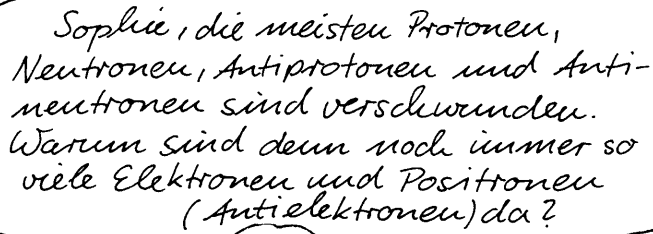 Sophie, die meisten Protonen,
Neutronen, Antiprotonen und Anti-
neutronen sind verschwunden.
Warum sind denn noch immer so
viele Elektronen und Positronen
(Antielektronen) da?